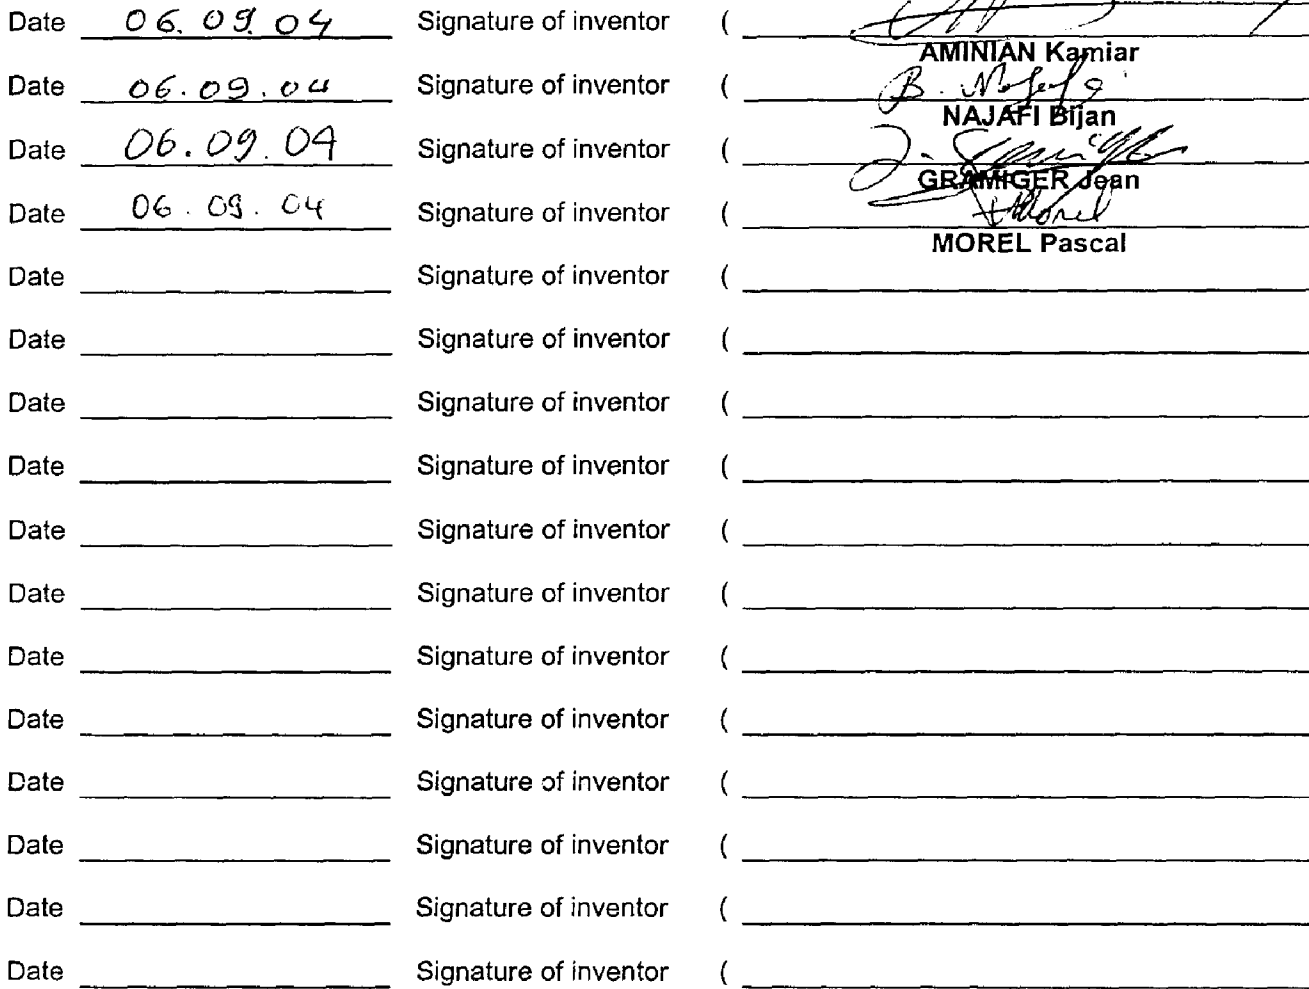 Date 06.09.04 Signature of inventor (
AMINIAN Kamiar
Date 06.09.04 Signature of inventor ( B. Najafi
NAJAFI Bijan
Date 06.09.04 Signature of inventor ( J. Gramiger
GRAMIGER Jean
Date 06.09.04 Signature of inventor ( Morel
MOREL Pascal
Date Signature of inventor (
Date Signature of inventor (
Date Signature of inventor (
Date Signature of inventor (
Date Signature of inventor (
Date Signature of inventor (
Date Signature of inventor (
Date Signature of inventor (
Date Signature of inventor (
Date Signature of inventor (
Date Signature of inventor (
Date Signature of inventor (